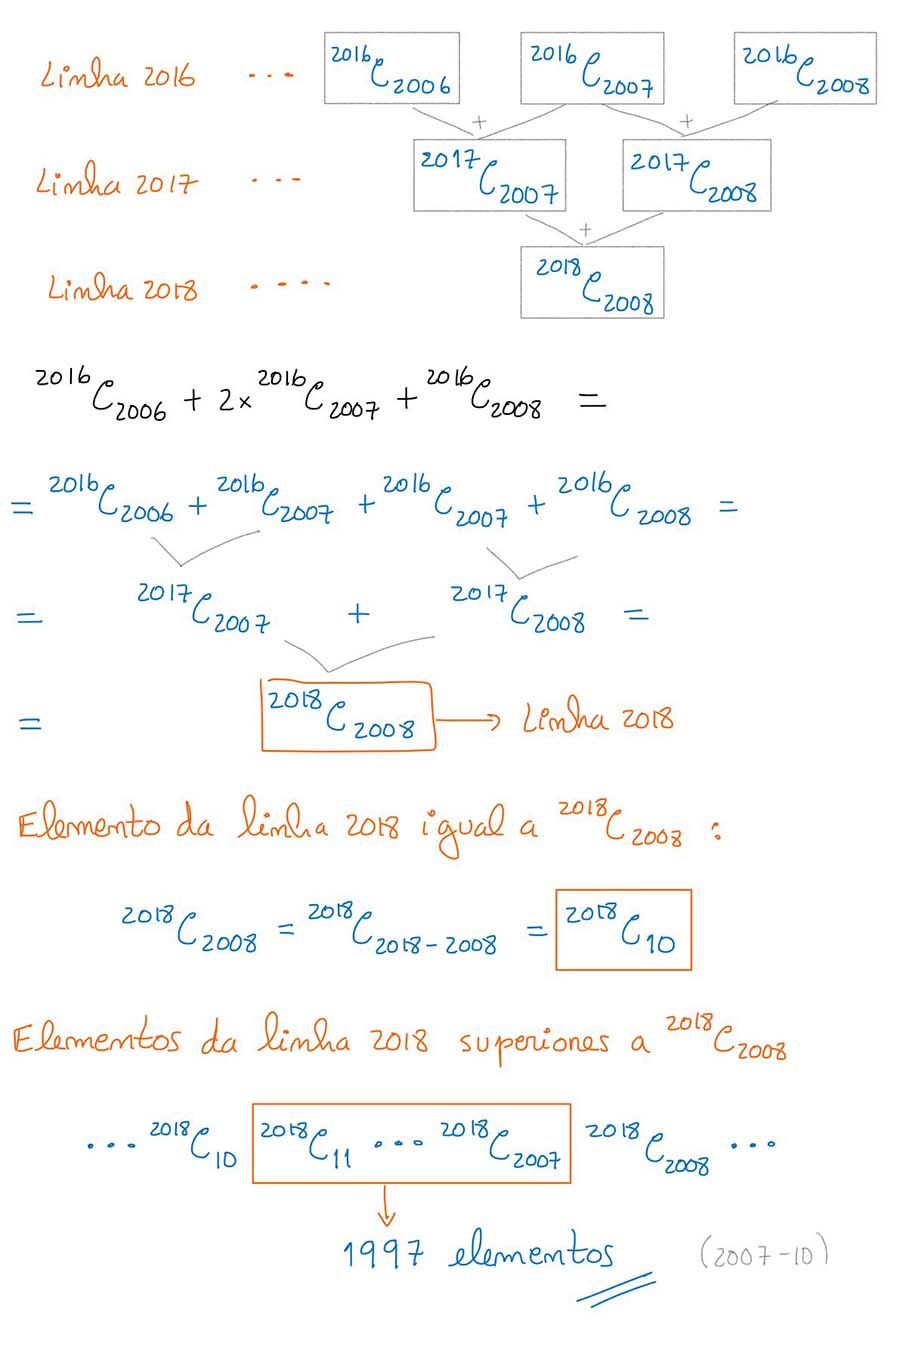 Linha 2016 ... ²⁰¹⁶C₂₀₀₆ ²⁰¹⁶C₂₀₀₇ ²⁰¹⁶C₂₀₀₈
+ +
Linha 2017 ... ²⁰¹⁷C₂₀₀₇ ²⁰¹⁷C₂₀₀₈
+
Linha 2018 .... ²⁰¹⁸C₂₀₀₈
²⁰¹⁶C₂₀₀₆ + 2× ²⁰¹⁶C₂₀₀₇ + ²⁰¹⁶C₂₀₀₈ =
= ²⁰¹⁶C₂₀₀₆ + ²⁰¹⁶C₂₀₀₇ + ²⁰¹⁶C₂₀₀₇ + ²⁰¹⁶C₂₀₀₈ =
= ²⁰¹⁷C₂₀₀₇ + ²⁰¹⁷C₂₀₀₈ =
= ²⁰¹⁸C₂₀₀₈ → Linha 2018
Elemento da linha 2018 igual a ²⁰¹⁸C₂₀₀₈ :
²⁰¹⁸C₂₀₀₈ = ²⁰¹⁸C₂₀₁₈₋₂₀₀₈ = ²⁰¹⁸C₁₀
Elementos da linha 2018 superiores a ²⁰¹⁸C₂₀₀₈
... ²⁰¹⁸C₁₀ ²⁰¹⁸C₁₁ ... ²⁰¹⁸C₂₀₀₇ ²⁰¹⁸C₂₀₀₈ ...
1997 elementos (2007-10)